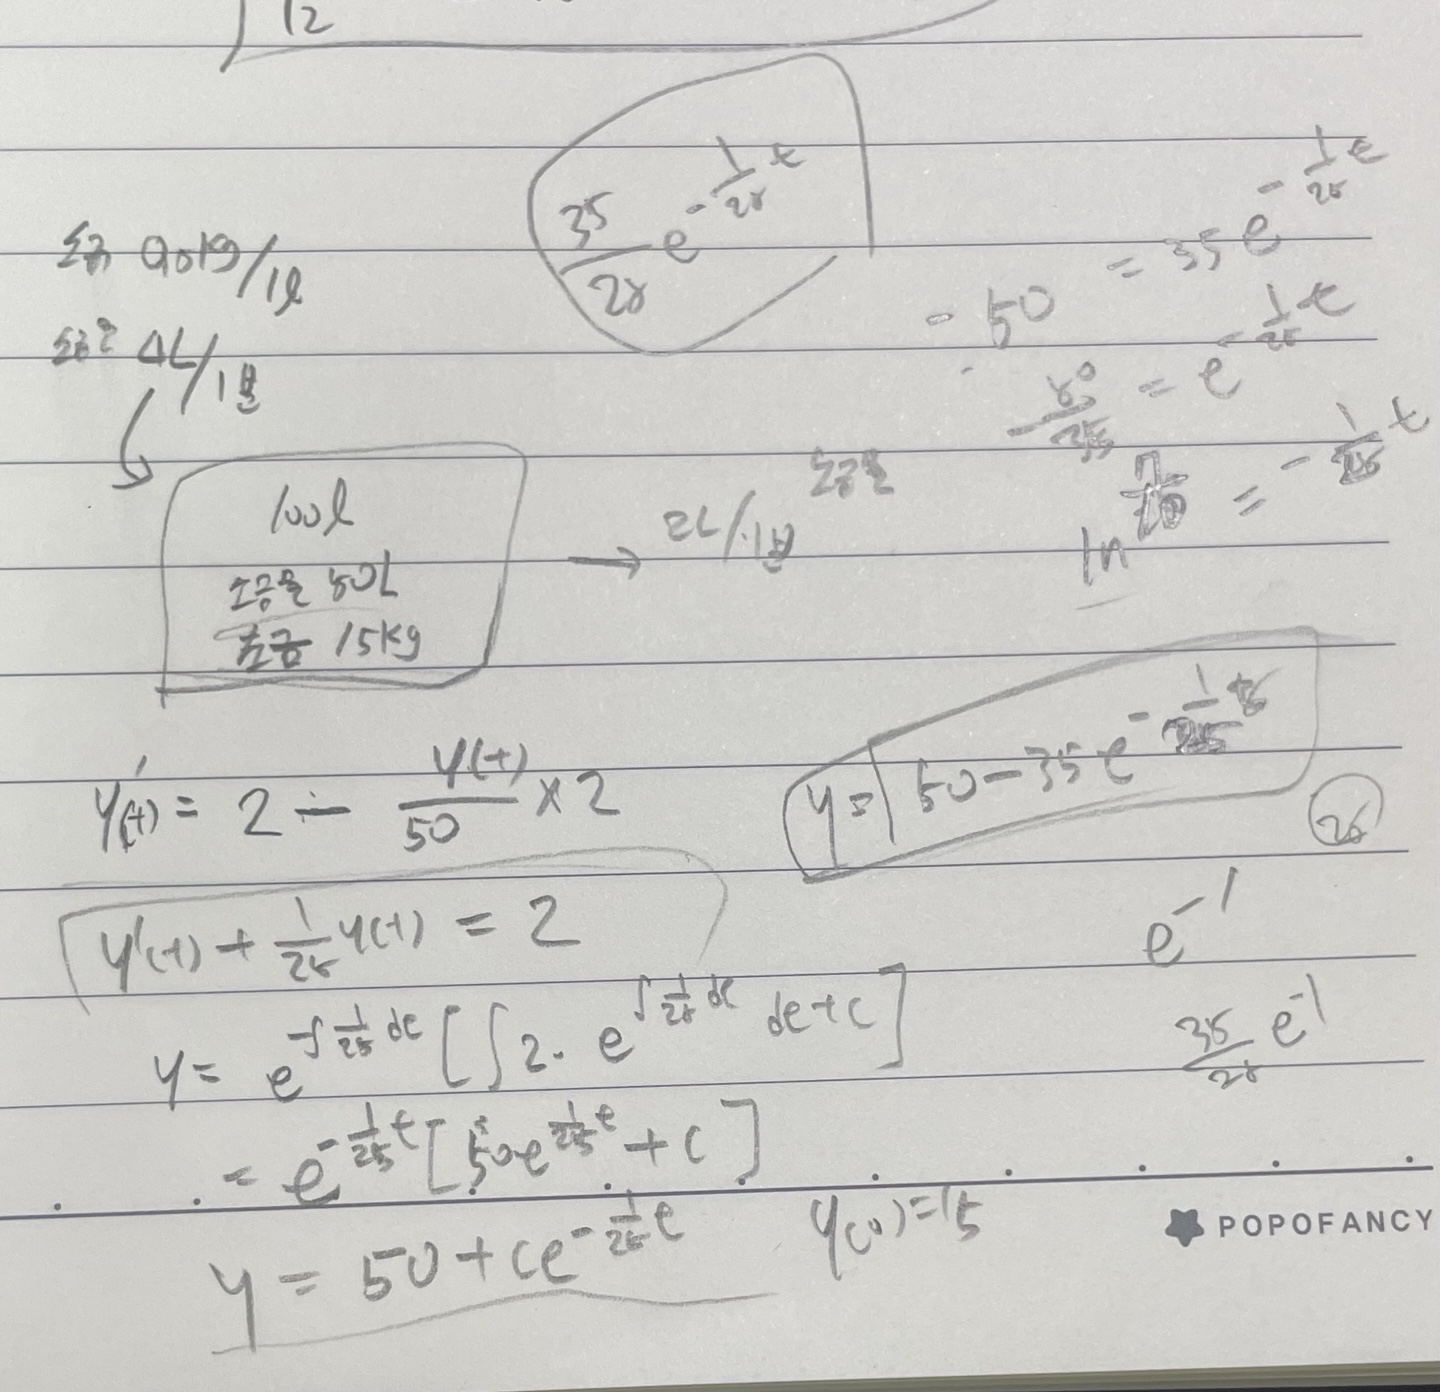 12
35/25 e^{-1/25 t}
소금 0.5kg/1l
소금물 4L/1분
100l
소금물 50L
소금 15kg
→ 2L/1분 소금물
- 50 = 35e^{-1/25 t}
= e^{-1/25 t}
ln 7/10 = -1/25 t
y'(t) = 2 - y(t)/50 × 2
y = 50 - 35e^{-1/25 t}
25
y'(t) + 1/25 y(t) = 2
e^{-1}
y = e^{-∫1/25 dt} [∫2 · e^{∫1/25 dt} dt + c]
35/25 e^{-1}
= e^{-1/25 t} [50e^{1/25 t} + c]
y = 50 + ce^{-1/25 t}
y(0) = 15
POPOFANCY